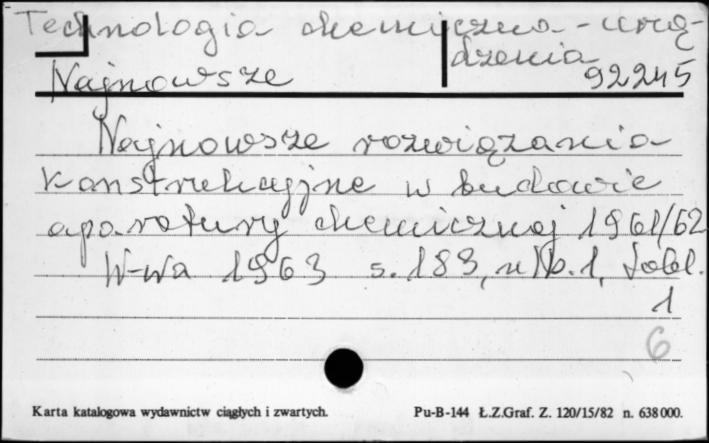 Technologia chemiczna - urzą-
dzenia
Najnowsze 92245
Najnowsze rozwiązania
konstrukcyjne w budowie
aparatury chemicznej 1961/62
W-wa 1963 s. 183, nlb. 1, tabl.
1
6
Karta katalogowa wydawnictw ciągłych i zwartych. Pu-B-144 Ł.Z.Graf. Z. 120/15/82 n. 638000.